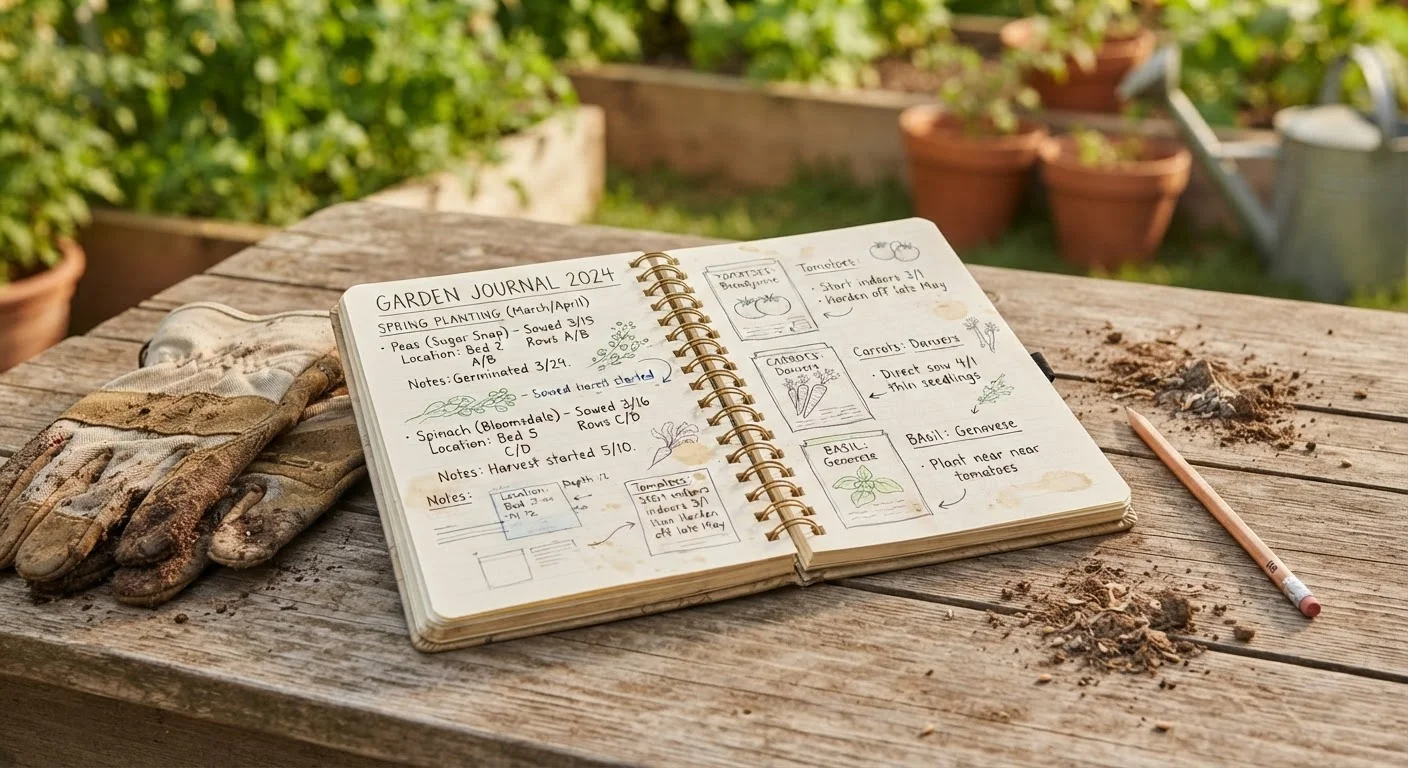 GARDEN JOURNAL 2024
SPRING PLANTING (March/April)
• Peas (Sugar Snap) – Sowed 3/15
Location: Bed 2 Rows A/B
A/B
Notes: Germinated 3/29.
– Sowed started
• Spinach (Bloomsdale) – Sowed 3/16
Location: Bed 5 Rows C/D
C/D
Notes: Harvest started 5/10.
Notes:
Location:
Bed
Depth
Tomatoes:
indoors 3/1
Harden
off late May
TOMATOES:
Tomatoes:
• Start indoors 3/1
• Harden off late May
CARROTS:
Danvers
Carrots: Danvers
• Direct sow 4/1
thin seedlings
BASIL:
Genevese
BAsil: Genavese
• Plant near near
tomatoes